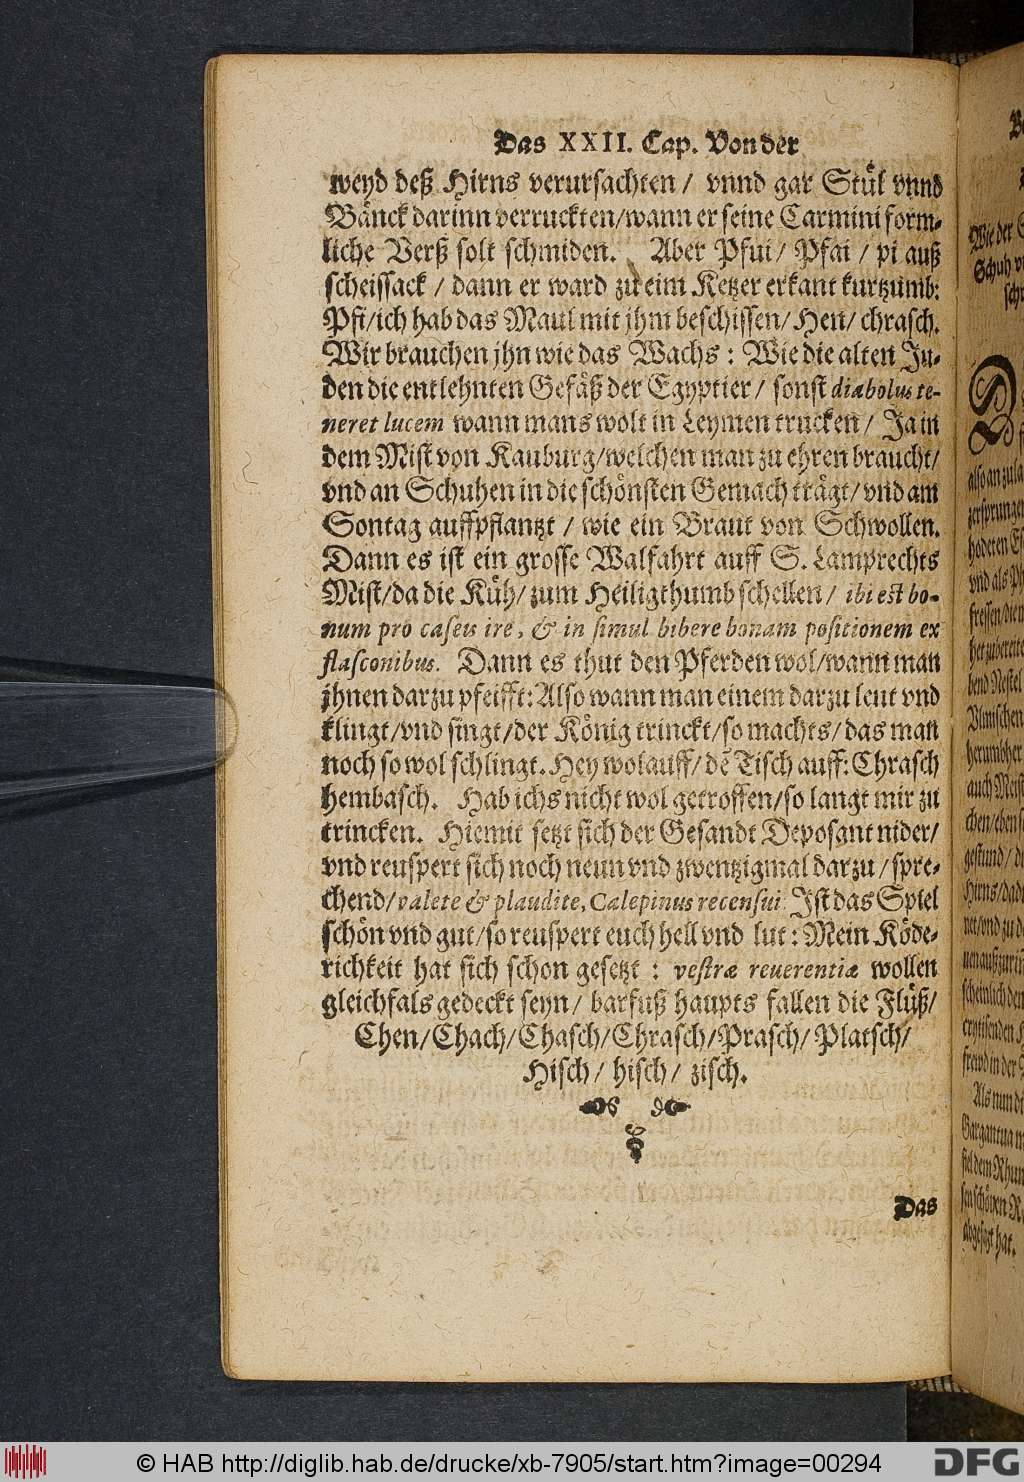 Das XXII. Cap. Von der
weyd deß Hirns verursachten / vnnd gar Stuͤl vnnd
Baͤnck darinn verruckten/wann er seine Carmini form-
liche Verß solt schmiden. Aber Pfui / Pfai / pi auß
scheissack / dann er ward zu eim Ketzer erkant kurtzumb:
Pfi/ich hab das Maul mit jhm beschissen/Hen/ chrasch.
Wir brauchen jhn wie das Wachs : Wie die alten Ju-
den die entlehnten Gefaͤß der Egyptier / sonst diabolus te-
neret lucem wann mans wolt in Leymen trucken / Ja in
dem Mist von Kauburg/welchen man zu ehren braucht/
vnd an Schuhen in die schoͤnsten Gemach traͤgt/vnd am
Sontag auffpflantzt / wie ein Braut von Schwollen.
Dann es ist ein grosse Walfahrt auff S. Lamprechts
Mist/da die Kuͤh/ zum Heiligthumb schellen / ibi est bo-
num pro caseis ire, & in simul bibere bonam positionem ex
flasconibus. Dann es thut den Pferden wol/wann man
jhnen darzu pfeifft: Also wann man einem darzu leut vnd
klingt/vnd singt/der Koͤnig trinckt/so machts/das man
noch so wol schlingt. Hey wolauff/ dē Tisch auff: Chrasch
hembasch. Hab ichs nicht wol getroffen/so langt mir zu
trincken. Hiemit setzt sich der Gesandt Deposant nider/
vnd reuspert sich noch neun vnd zwentzigmal darzu / spre-
chend/valete & plaudite, Calepinus recensui. Ist das Spiel
schoͤn vnd gut/so reuspert euch hell vnd lut : Mein Koͤde-
richkeit hat sich schon gesetzt : vestræ reuerentiæ wollen
gleichfals gedeckt seyn / barfuß haupts fallen die Fluͤß/
Chen/Chach/Chasch/Chrasch/Prasch/Platsch/
Hisch / hisch / zisch.
Das
© HAB http://diglib.hab.de/drucke/xb-7905/start.htm?image=00294
DFG